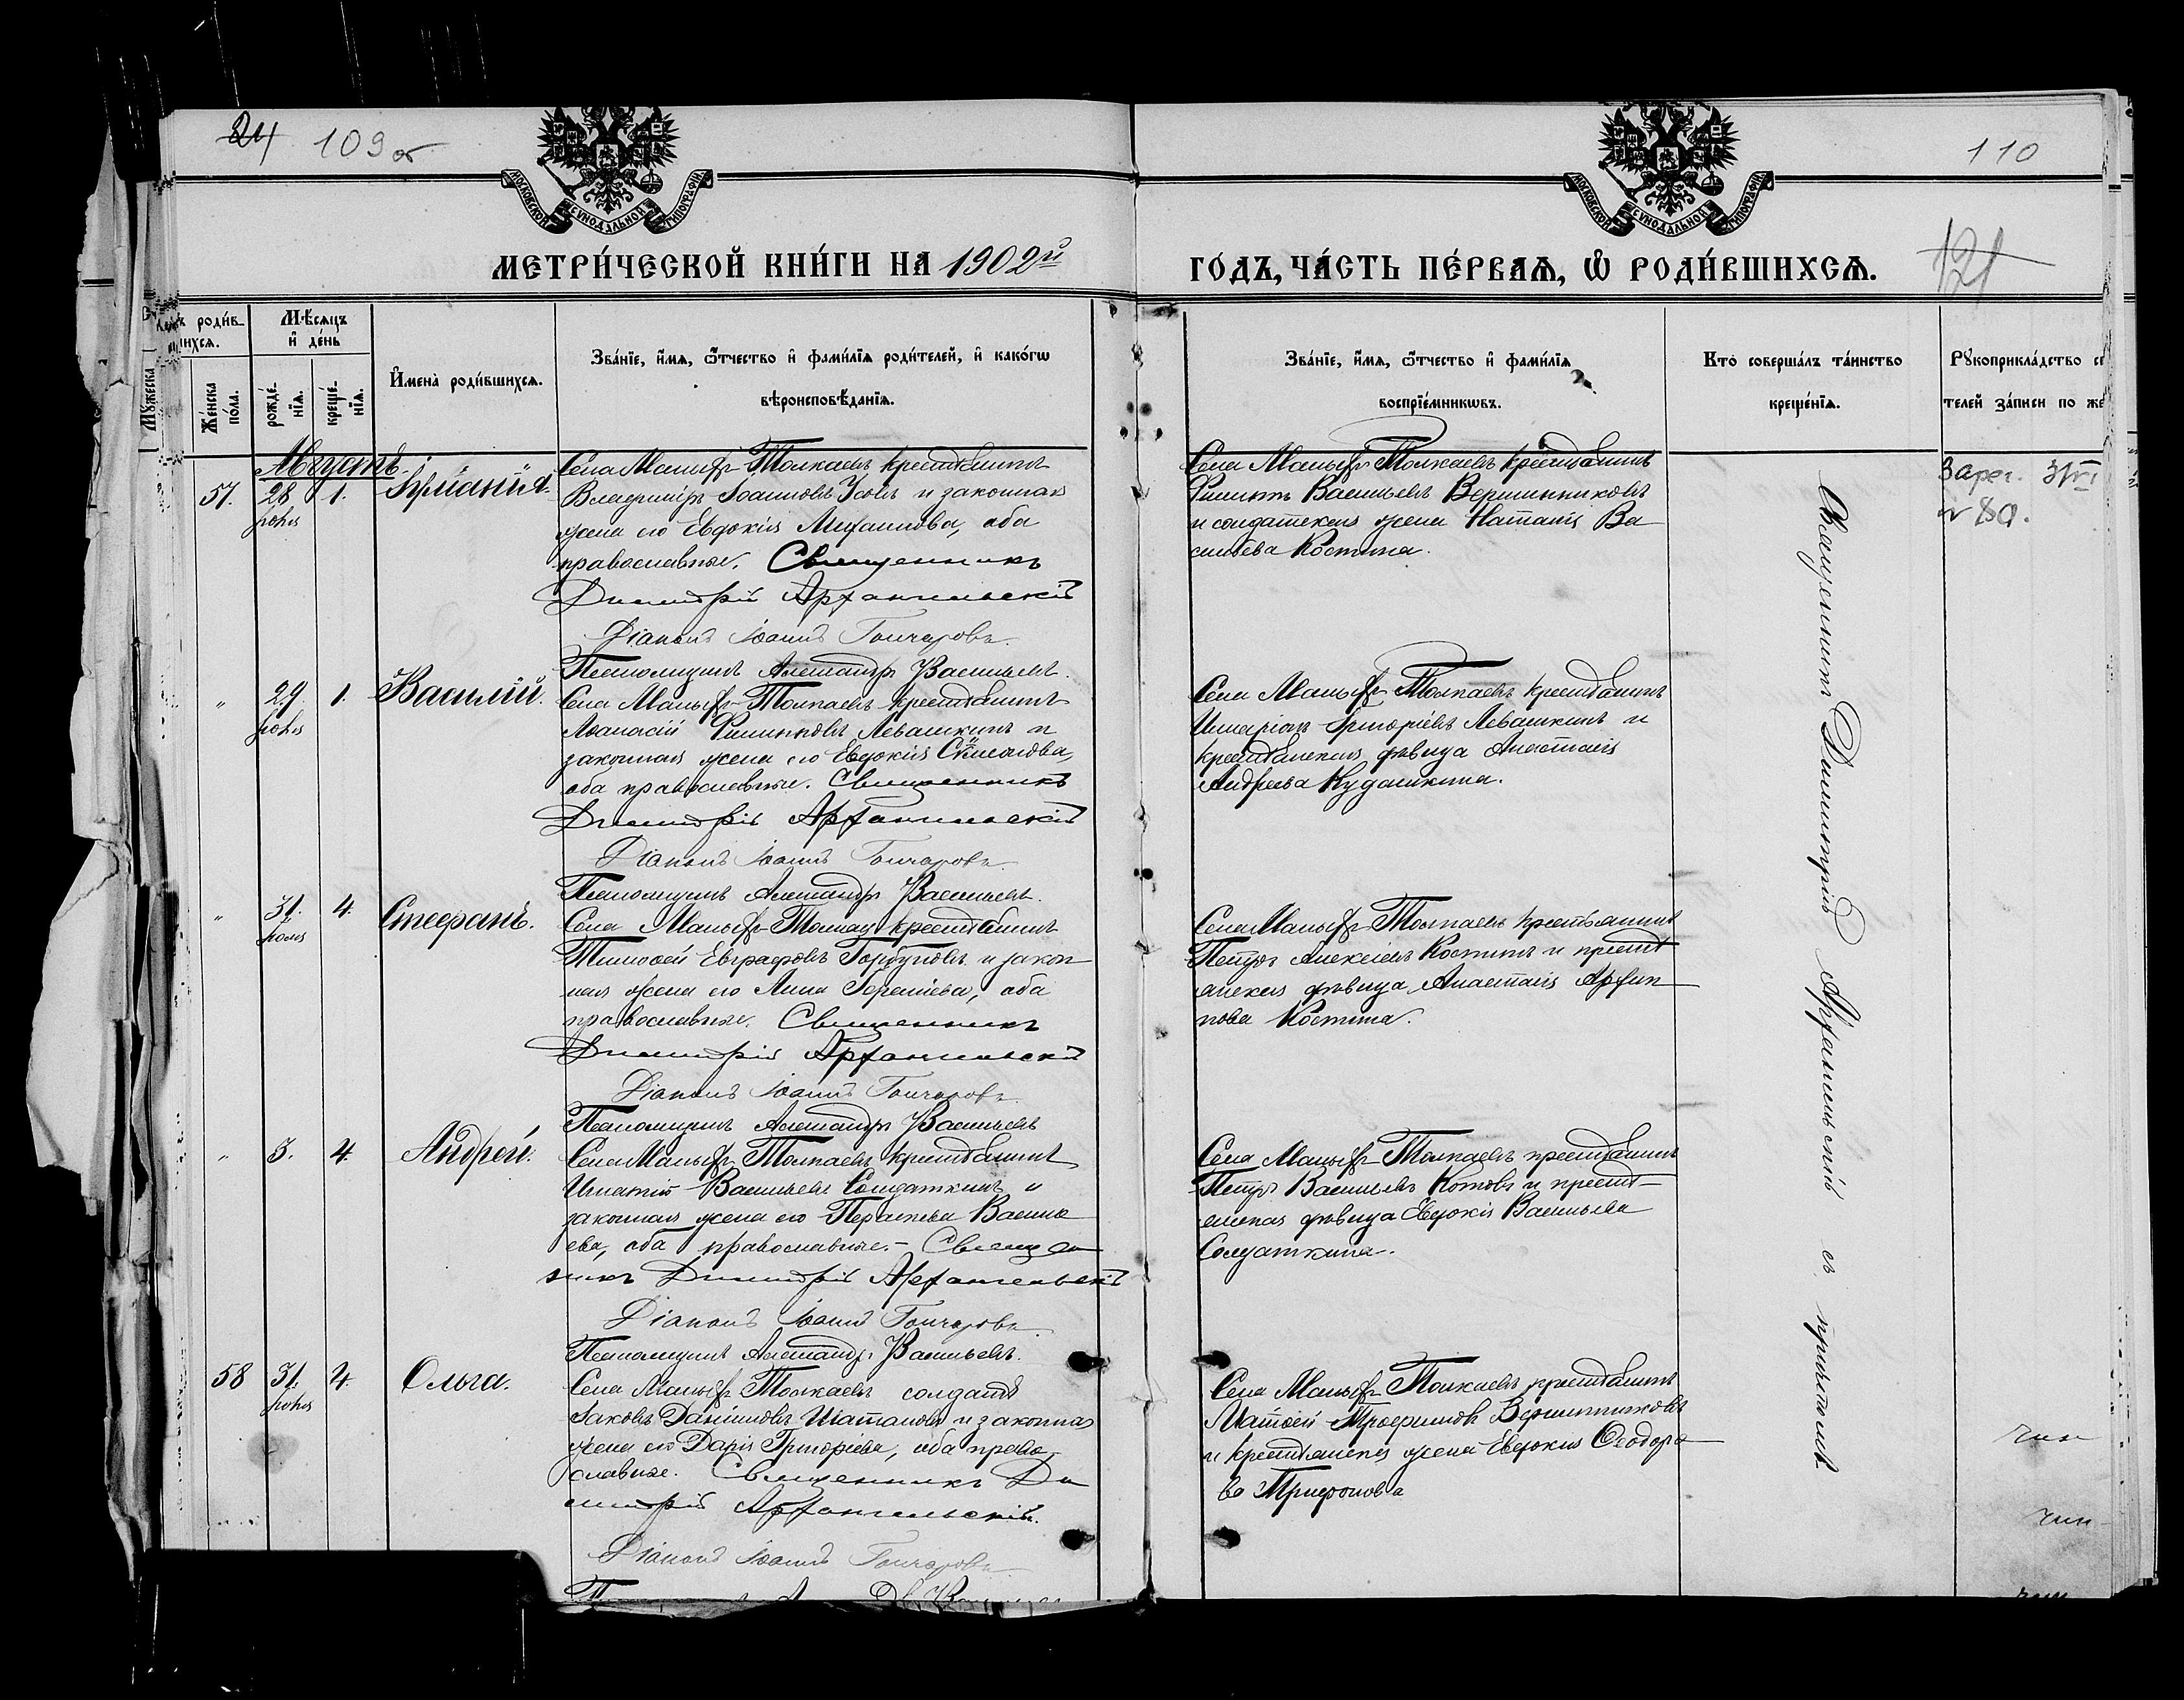 24 109 об
110
МОСКОВСКОЙ СѴНОДАЛЬНОЙ ТИПОГРАФІИ
МОСКОВСКОЙ СѴНОДАЛЬНОЙ ТИПОГРАФІИ
МЕТРИ́ЧЕСКОЙ КНИ́ГИ НА 1902й
ГО́ДЪ, ЧА́СТЬ ПЕ́РВАѦ, Ѡ҆ РОДИ́ВШИХСѦ.
121
роди́в-
шихсѧ.
Мѣ́сѧцъ
и҆ де́нь
Мꙋ́жеска
Же́нска
по́ла.
рожде́-
нїѧ.
креще́-
нїѧ.
И҆мена̀ роди́вшихсѧ.
Зва́нїе, и҆́мѧ, ѻ҆́тчество и҆ фами́лїѧ роди́телей, и҆ како́гѡ
вѣроисповѣ́данїѧ.
Зва́нїе, и҆́мѧ, ѻ҆́тчество и҆ фами́лїѧ
воспрїе́мникѡвъ.
Кто̀ соверша́лъ та́инство
креще́нїѧ.
Рꙋкоприкла́дство
телей за́писи по
Августъ.
57. 28 1.
Села Малыхъ-Толкаевъ крестьянинъ
Владиміръ Іоанновъ Усовъ и законная
жена его Евдокія Михаилова, оба
православные. Священникъ
Димитрій Архангельскій
Діаконъ Іоаннъ Гончаровъ.
Псаломщикъ Александръ Васильевъ.
Села Малыхъ-Толкаевъ крестьянинъ
Филиппъ Васильевъ Вершинниковъ
и солдатская жена Наталія Ва-
сильева Костина.
Зарег.
№ 80.
" 29 1. Василій.
Села Малыхъ-Толкаевъ крестьянинъ
Афанасій Филипповъ Левашкинъ и
законная жена его Евдокія
оба православные. Священникъ
Димитрій Архангельскій
Діаконъ Іоаннъ Гончаровъ.
Псаломщикъ Александръ Васильевъ.
Села Малыхъ-Толкаевъ крестьянинъ
Иларіонъ Григорьевъ Левашкинъ и
крестьянская дѣвица Анастасія
Андреева Кудашкина.
" 31. 4. Стефанъ.
Села Малыхъ-Толкаевъ крестьянинъ
Тимофей Евграфовъ Горбуновъ и закон
ная жена его Анна оба
православные. Священникъ
Димитрій Архангельскій
Діаконъ Іоаннъ Гончаровъ.
Псаломщикъ Александръ Васильевъ
Села Малыхъ-Толкаевъ крестьянинъ
Петръ Алексіевъ Костинъ и крестья
анская дѣвица Анастасія Архип
пова Костина.
" 3. 4. Андрей.
Села Малыхъ-Толкаевъ крестьянинъ
Игнатій Васильевъ Солдаткинъ и
законная жена его Параскева Василь
ева, оба православные.- Священ
никъ Димитрій Архангельскій
Діаконъ Іоаннъ Гончаровъ.
Псаломщикъ Александръ Васильевъ.
Села Малыхъ-Толкаевъ крестьянинъ
Петръ Васильевъ Котовъ и крестья-
анская дѣвица Евдокія Васильева
Солдаткина.
58 31. 4. Ольга.
Села Малыхъ Толкаевъ солдатъ
Іаковъ Даніиловъ Шаталовъ и законная
жена его Дарія Григоріева, оба право
славные. Священникъ Ди
митрій Архангельскій.
Діаконъ Іоаннъ Гончаровъ.
Села Малыхъ-Толкаевъ крестьянинъ
Матѳей Трофимовъ Вершинниковъ
и крестьянская жена Евдокія Ѳеодоро
ва Трифонова
Священникъ Димитрій Архангельскій съ причтомъ.